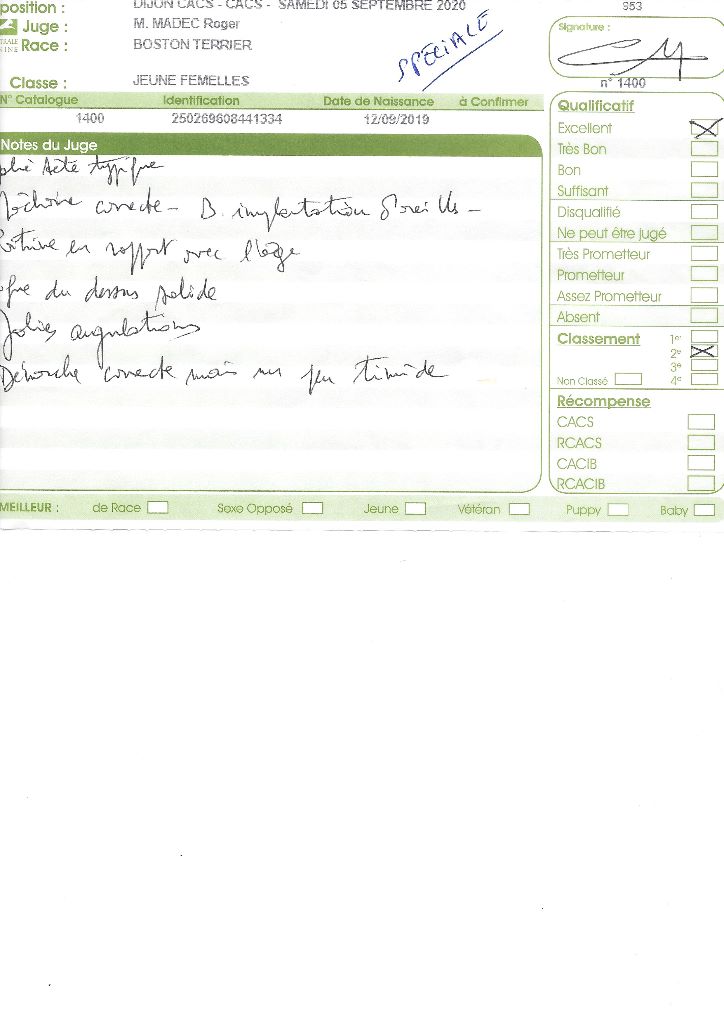 position : DIJON CACS - CACS - SAMEDI 05 SEPTEMBRE 2020
953
Juge : M. MADEC Roger
Race : BOSTON TERRIER
SPECIALE
Signature :
Classe : JEUNE FEMELLES
n° 1400
N° Catalogue Identification Date de Naissance à Confirmer
1400 250269608441334 12/09/2019
Notes du Juge
jolie tête typique
Mâchoire correcte - B. implantation d'oreilles -
Poitrine en rapport avec l'âge
ligne du dessus solide
Jolies angulations
Démarche correcte mais un peu timide
Qualificatif
Excellent
Très Bon
Bon
Suffisant
Disqualifié
Ne peut être jugé
Très Prometteur
Prometteur
Assez Prometteur
Absent
Classement 1er
2e
3e
Non Classé 4e
Récompense
CACS
RCACS
CACIB
RCACIB
MEILLEUR : de Race Sexe Opposé Jeune Vétéran Puppy Baby